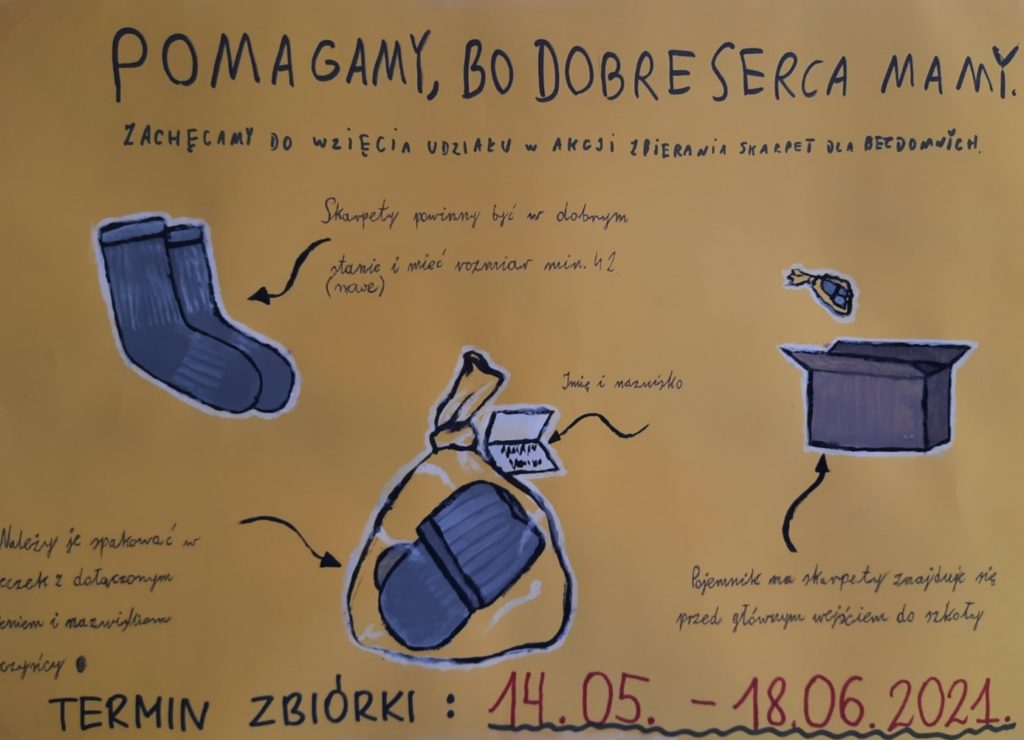 POMAGAMY, BO DOBRE SERCA MAMY.
ZACHĘCAMY DO WZIĘCIA UDZIAŁU W AKCJI ZBIERANIA SKARPET DLA BEZDOMNYCH.
Skarpety powinny być w dobrym
stanie i mieć rozmiar min. 42.
(nowe)
Imię i nazwisko
Należy je spakować w
z dołączonym
i nazwiskiem
Pojemnik na skarpety znajduje się
przed głównym wejściem do szkoły
TERMIN ZBIÓRKI : 14.05. - 18.06.2021.